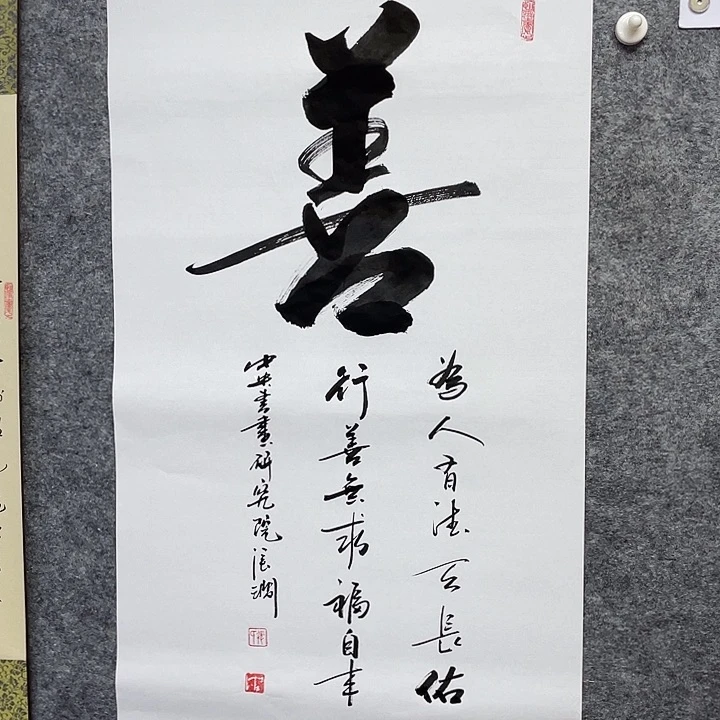 善
為人有德天長佑
行善無求福自來
中央書畫研究院